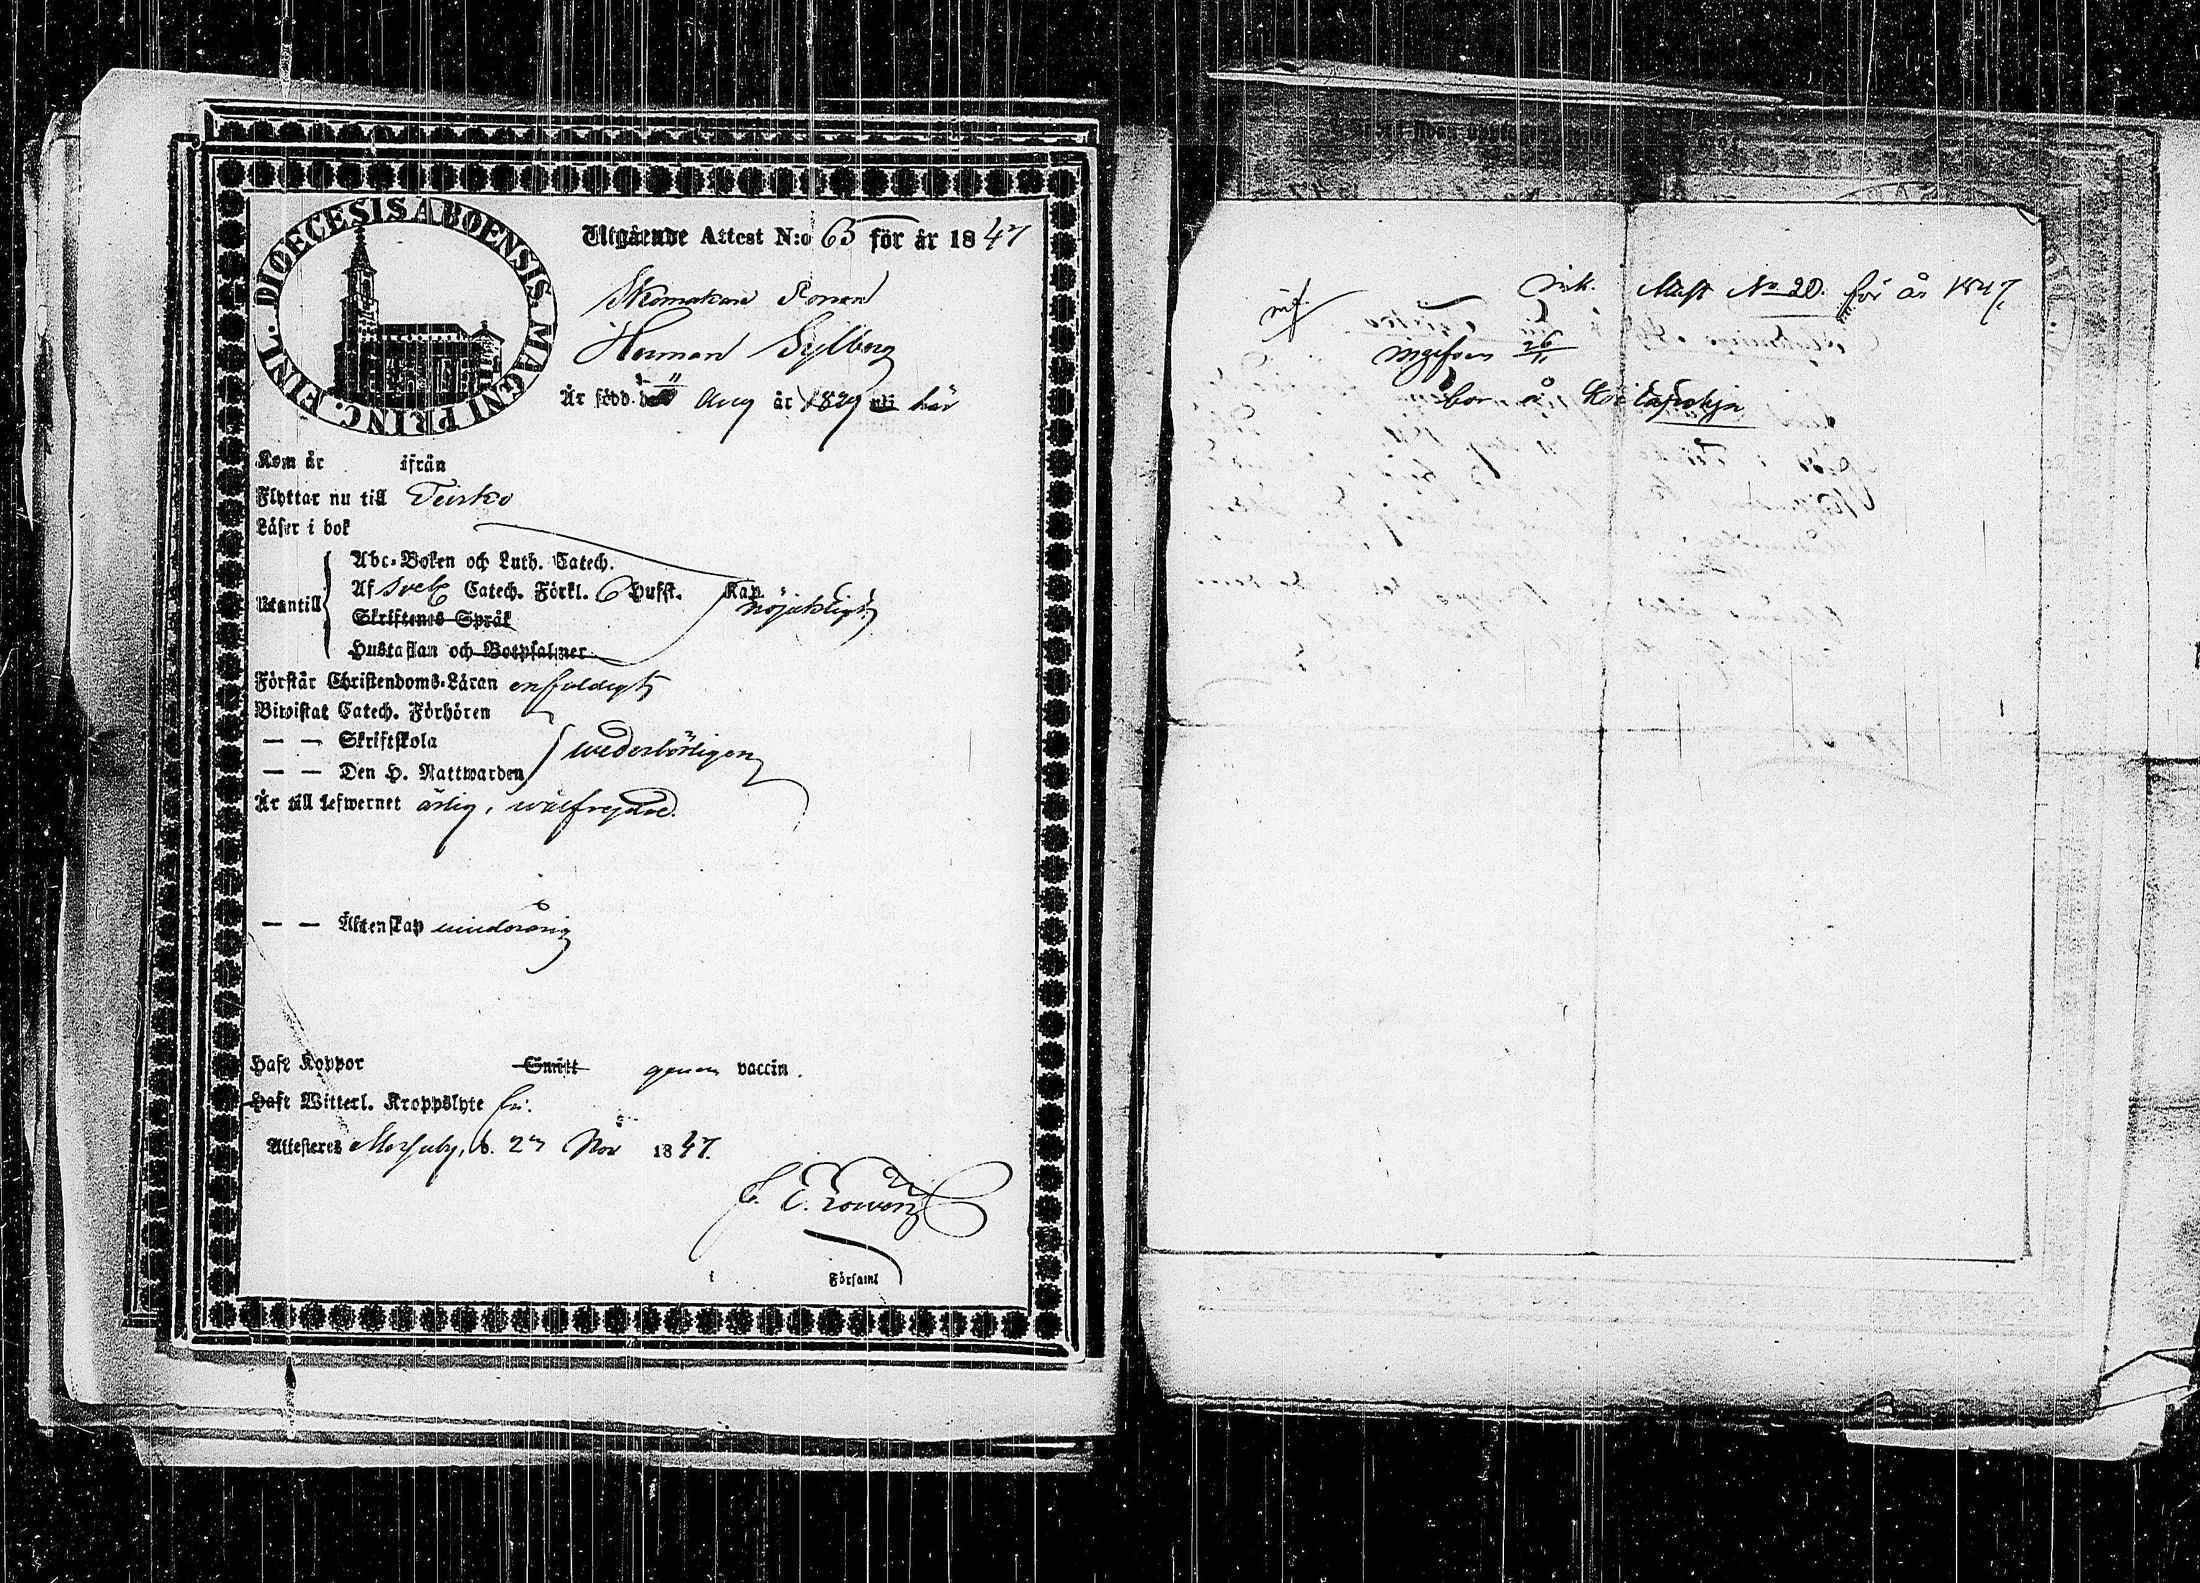 DIOECESIS ABOENSIS. MAGNI PRINC. FINL.
Utgående Attest N:o 65 för år 1847
Skomakare Sonen
Herman Sylberg
Är född d. 11 Aug år 1829 här
Kom år ifrån
Flyttar nu till Teisko
Läser i bok
Utantill
Abc-Boken och Luth. Catech.
Af Sveb. Catech. Förkl. 6 Hufst. Kap.
nöjaktligt
Skriftenes Språk
Hustaflan och Botpsalmer
Förstår Christendoms-Läran enfaldigt
Biwistat Catech. Förhören
— — Skriftskola
wederbörligen
— — Den H. Nattwarden
Är till lefwernet ärlig, wälfrejdad.
— — Äktenskap minderårig
Haft Koppor Smitt genom vaccin.
Haft Witterl. Kroppslyte fri.
Attesteras Messuby, d. 23 Nov 1847.
i Församl
Ink. Attest No 20. för år 1847.
inf
26/11
bor å